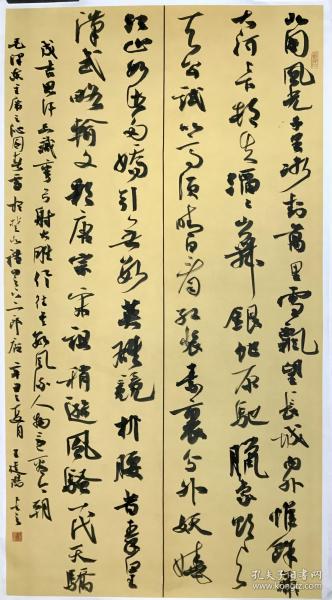 北国风光千里冰封万里雪飘望长城内外惟余莽莽
大河上下顿失滔滔山舞银蛇原驰腊象欲与
天公试比高须晴日看红装素裹分外妖娆
江山如此多娇引无数英雄竞折腰昔秦皇
汉武略输文采唐宗宋祖稍逊风骚一代天骄
成吉思汗只识弯弓射大雕俱往矣数风流人物还看今朝
毛泽东主席之沁园春雪
孔夫子旧书网